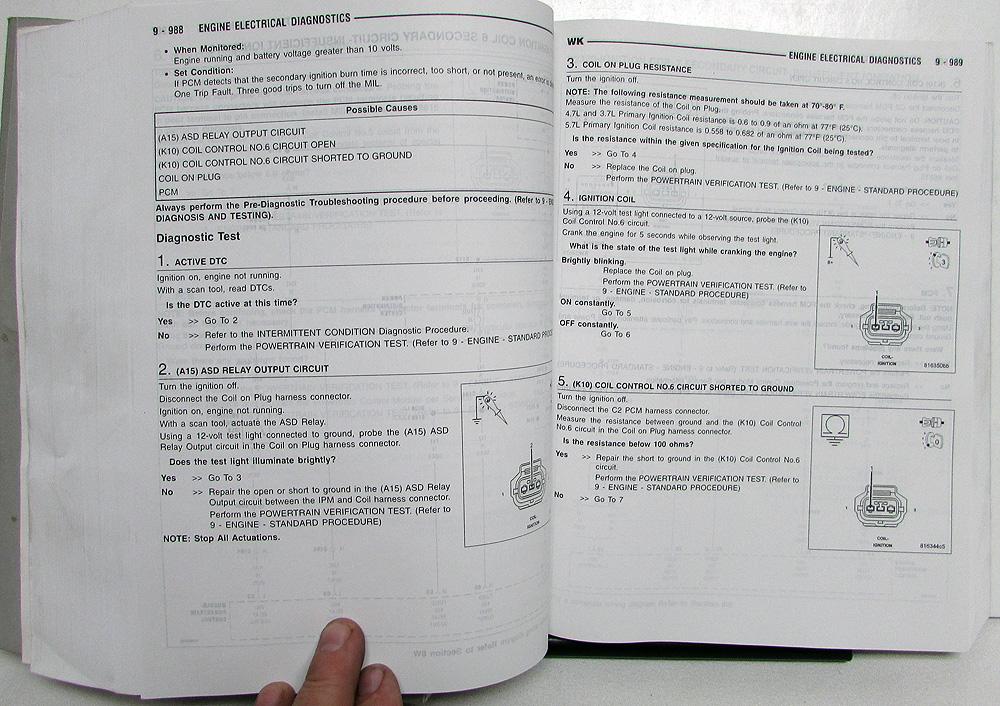 9 - 988 ENGINE ELECTRICAL DIAGNOSTICS
• When Monitored:
Engine running and battery voltage greater than 10 volts.
• Set Condition:
If PCM detects that the secondary ignition burn time is incorrect, too short, or not present, an error is
One Trip Fault. Three good trips to turn off the MIL.
Possible Causes
(A15) ASD RELAY OUTPUT CIRCUIT
(K10) COIL CONTROL NO.6 CIRCUIT OPEN
(K10) COIL CONTROL NO.6 CIRCUIT SHORTED TO GROUND
COIL ON PLUG
PCM
Always perform the Pre-Diagnostic Troubleshooting procedure before proceeding. (Refer to 9 -
DIAGNOSIS AND TESTING).
Diagnostic Test
1. ACTIVE DTC
Ignition on, engine not running.
With a scan tool, read DTCs.
Is the DTC active at this time?
Yes >> Go To 2
No >> Refer to the INTERMITTENT CONDITION Diagnostic Procedure.
Perform the POWERTRAIN VERIFICATION TEST. (Refer to 9 - ENGINE - STANDARD
2. (A15) ASD RELAY OUTPUT CIRCUIT
Turn the ignition off.
Disconnect the Coil on Plug harness connector.
Ignition on, engine not running.
With a scan tool, actuate the ASD Relay.
Using a 12-volt test light connected to ground, probe the (A15) ASD
Relay Output circuit in the Coil on Plug harness connector.
Does the test light illuminate brightly?
Yes >> Go To 3
No >> Repair the open or short to ground in the (A15) ASD Relay
Output circuit between the IPM and Coil harness connector.
Perform the POWERTRAIN VERIFICATION TEST. (Refer to
9 - ENGINE - STANDARD PROCEDURE)
NOTE: Stop All Actuations.
2
1
COIL-
IGNITION
WK
ENGINE ELECTRICAL DIAGNOSTICS 9 - 989
3. COIL ON PLUG RESISTANCE
Turn the ignition off.
NOTE: The following resistance measurement should be taken at 70°-80° F.
Measure the resistance of the Coil on Plug.
4.7L and 3.7L Primary Ignition Coil resistance is 0.6 to 0.9 of an ohm at 77°F (25°C).
5.7L Primary Ignition Coil resistance is 0.558 to 0.682 of an ohm at 77°F (25°C).
Is the resistance within the given specification for the Ignition Coil being tested?
Yes >> Go To 4
No >> Replace the Coil on plug.
Perform the POWERTRAIN VERIFICATION TEST. (Refer to 9 - ENGINE - STANDARD PROCEDURE)
4. IGNITION COIL
Using a 12-volt test light connected to a 12-volt source, probe the (K10)
Coil Control No.6 circuit.
Crank the engine for 5 seconds while observing the test light.
What is the state of the test light while cranking the engine?
Brightly blinking.
Replace the Coil on plug.
Perform the POWERTRAIN VERIFICATION TEST. (Refer to
9 - ENGINE - STANDARD PROCEDURE)
ON constantly.
Go To 5
OFF constantly.
Go To 6
B+
3
1
3
COIL-
IGNITION
8163506b
5. (K10) COIL CONTROL NO.6 CIRCUIT SHORTED TO GROUND
Turn the ignition off.
Disconnect the C2 PCM harness connector.
Measure the resistance between ground and the (K10) Coil Control
No.6 circuit in the Coil on Plug harness connector.
Is the resistance below 100 ohms?
Yes >> Repair the short to ground in the (K10) Coil Control No.6
circuit.
Perform the POWERTRAIN VERIFICATION TEST. (Refer to
9 - ENGINE - STANDARD PROCEDURE)
No >> Go To 7
1
3
COIL-
IGNITION
816344e5